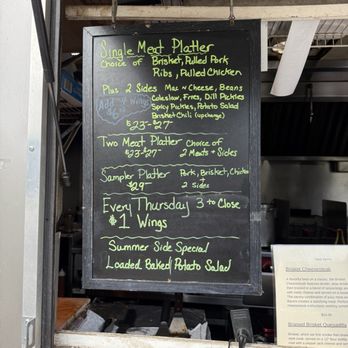 Single Meat Platter
Choice of Brisket, Pulled Pork
Ribs, Pulled Chicken
Plus 2 Sides Mac n Cheese, Beans
Coleslaw, Fries, Dill Pickles
Spicy Pickles, Potato Salad
Brisket Chili (upcharge)
Add 4 Wings
$6
$23-$27
Two Meat Platter Choice of
$23-$27 2 Meats + Sides
Sampler Platter Pork, Brisket, Chicken
$29 + 2 Sides
Every Thursday 3 to Close
$1 Wings
Summer Side Special
Loaded Baked Potato Salad
Brisket Cheesesteak
Brisket Quesadilla